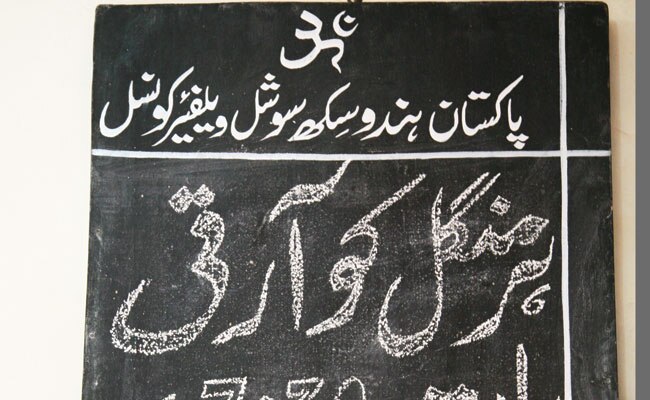 ॐ
پاکستان ہندو سکھ سوشل ویلفیئر کونسل
ہر منگل کو آرتی